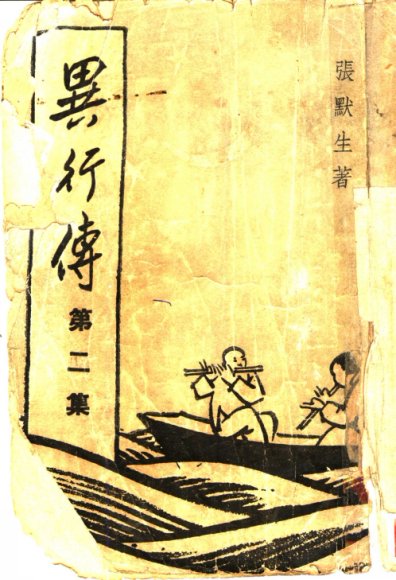 張默生著
異行傳
第二集